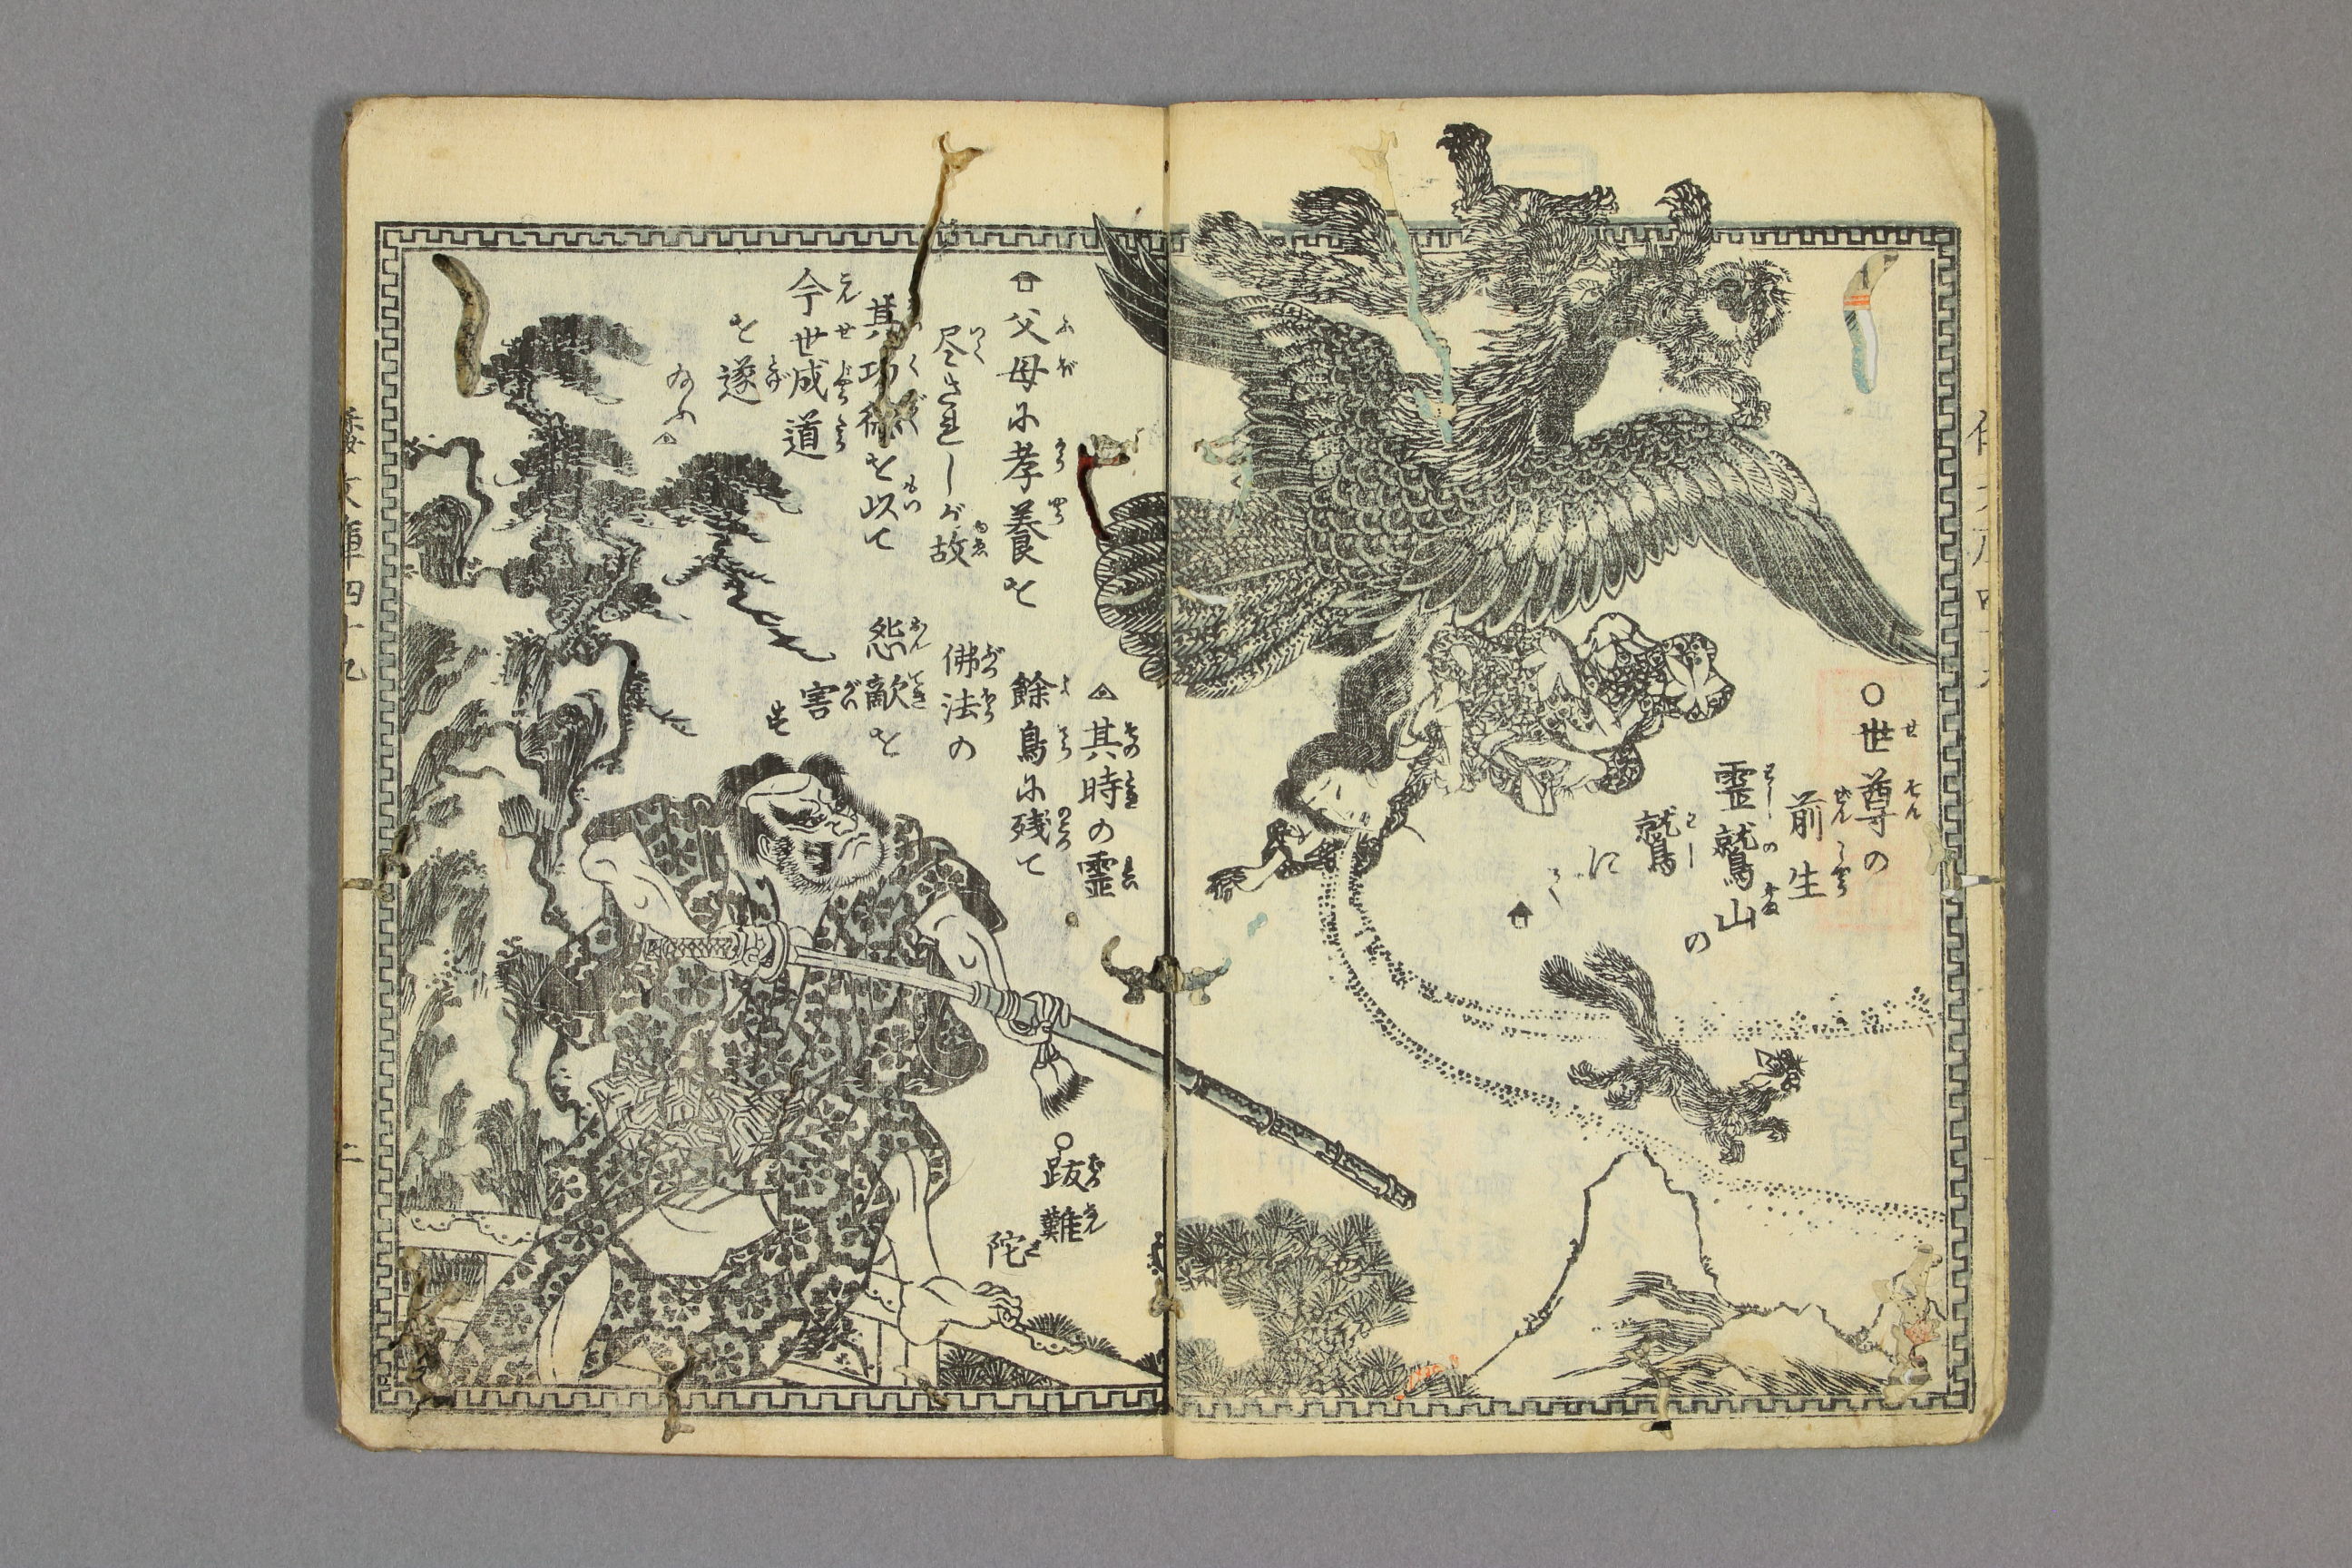 ○世尊の
前生
霊鷲山の
鷲
に
父母に孝養を
尽されしが故
其功徳を以て
今世成道
を遂
給ふ
其時の霊
餘鳥に残て
佛法の
怨敵を
害す
○跋難
陀
倭文庫四十九
二